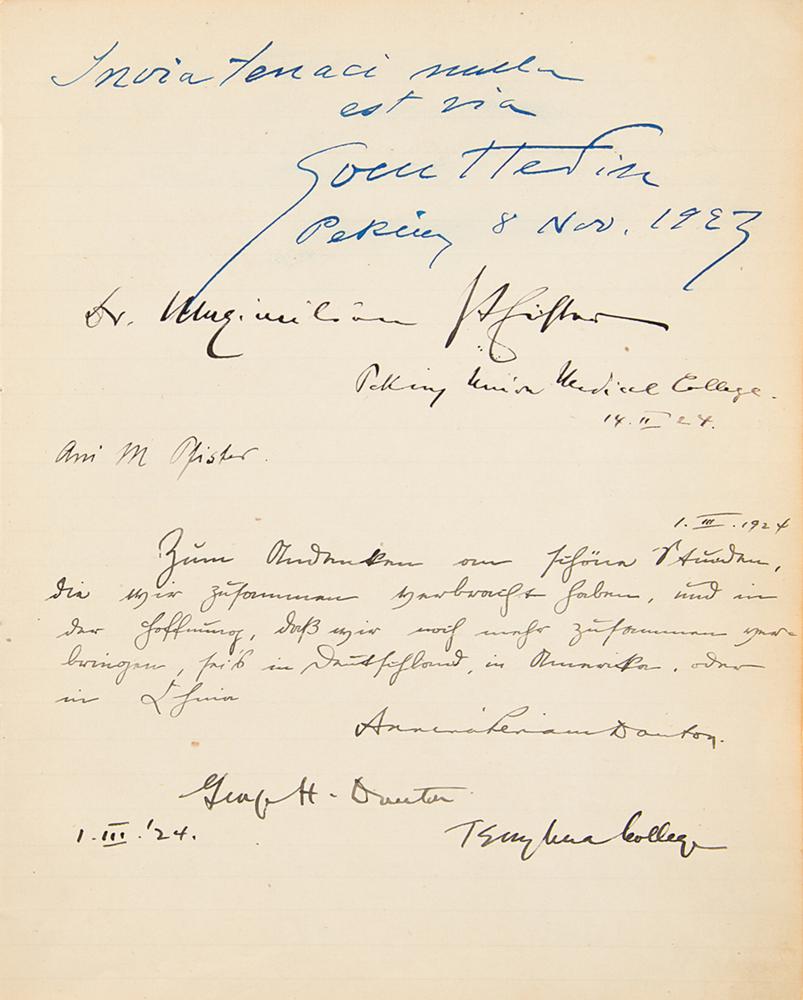 Invia tenaci nulla
est via
Sven Hedin
Peking 8 Nov. 1923
Dr. Maximilian Pfister
Peking Union Medical College.
14.II 24.
Ani M Pfister.
1.III.1924
Zum Andenken an schöne Stunden,
die wir zusammen verbracht haben, und in
der Hoffnung, daß wir noch mehr zusammen ver-
bringen, sei's in Deutschland, in Amerika, oder
in China
Danton.
George H. Danton
1.III.'24.
Tsinghua College